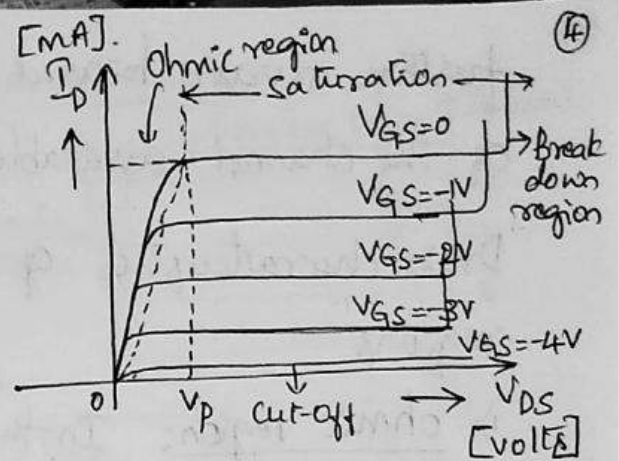 [mA].
④
I_D
Ohmic region
← saturation →
V_GS=0
→ Break
down
region
V_GS=-1V
V_GS=-2V
V_GS=-3V
V_GS=-4V
0
V_P
Cut-off
→ V_DS
[volts]